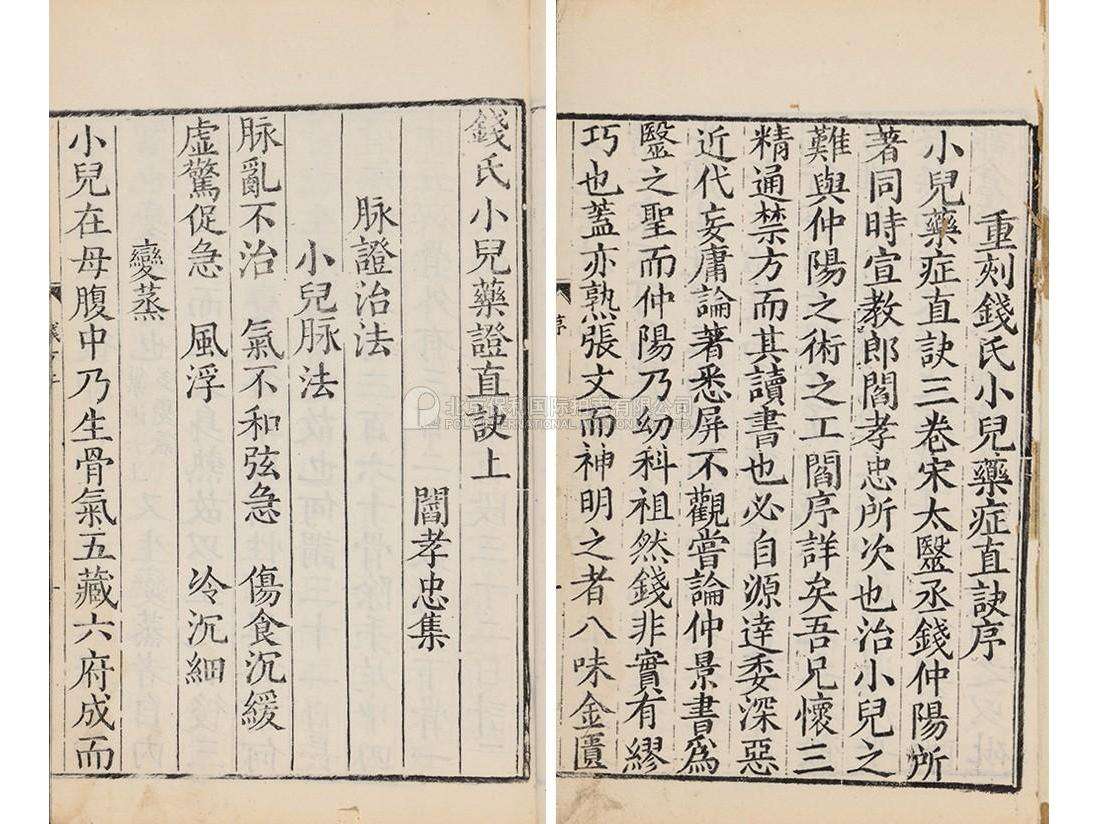 重刻錢氏小兒藥症直訣序
小兒藥症直訣三卷宋太毉丞錢仲陽所
著同時宣教郎閻孝忠所次也治小兒之
難與仲陽之術之工閻序詳矣吾兄懷三
精通禁方而其讀書也必自源逹委深惡
近代妄庸論著悉屏不觀嘗論仲景書爲
毉之聖而仲陽乃幼科祖然錢非實有繆
巧也蓋亦熟張文而神明之者八味金匱
序
錢氏小兒藥證直訣上
閻孝忠集
脉證治法
小兒脉法
脉亂不治 氣不和弦急 傷食沉緩
虛驚促急 風浮 冷沉細
變蒸
小兒在母腹中乃生骨氣五藏六府成而
北京保利国际拍卖有限公司
POLY INTERNATIONAL AUCTION CO.,LTD.